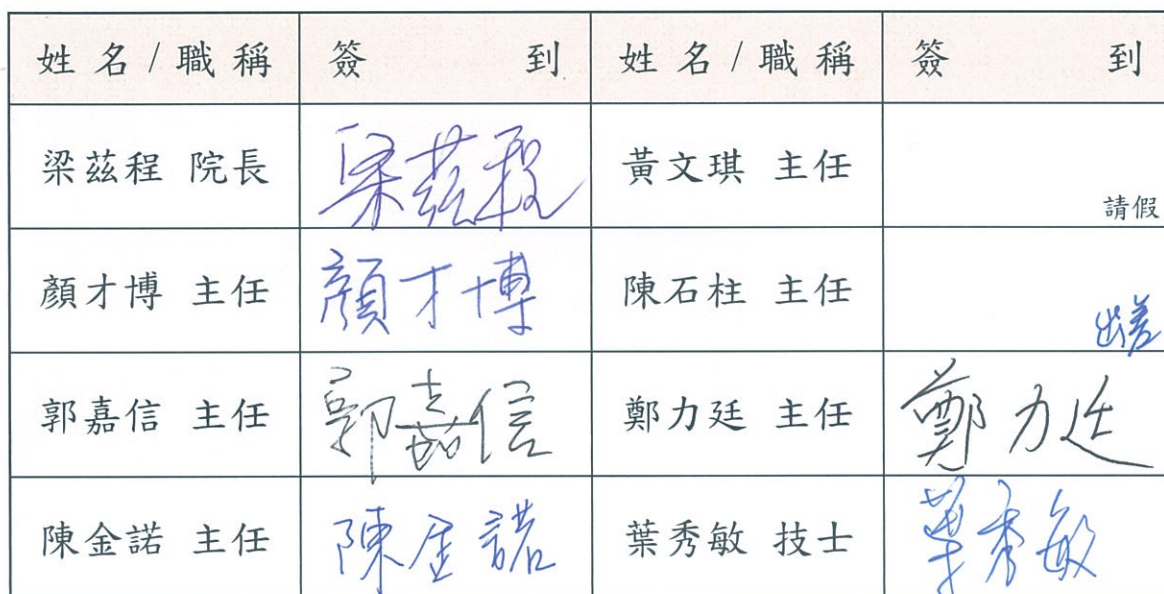 姓名/職稱 簽到 姓名/職稱 簽到
梁茲程 院長 梁茲程 黃文琪 主任 請假
顏才博 主任 顏才博 陳石柱 主任 出差
郭嘉信 主任 郭嘉信 鄭力廷 主任 鄭力廷
陳金諾 主任 陳金諾 葉秀敏 技士 葉秀敏